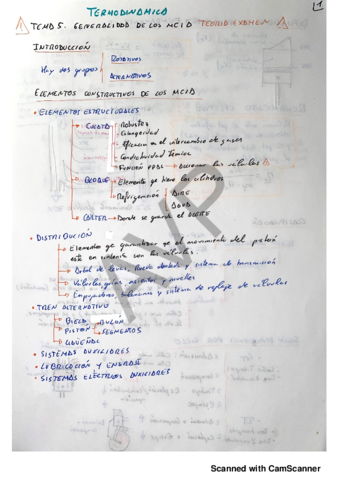 1
TERMODINÁMICA
TEMA 5. GENERALIDAD DE LOS MCIA TEORIA EXAMEN
INTRODUCCIÓN
Hay dos grupos
ROTATIVOS
ALTERNATIVOS
ELEMENTOS CONSTRUCTIVOS DE LOS MCIA
• ELEMENTOS ESTRUCTURALES
CULATA
Robustez
Eficiencia en el intercambio de gases
Conductividad Termica
FUNCIÓN PPAL: las válvulas
BLOQUE
Elemento que tiene los cilindros
Refrigeración
AIRE
AGUA
CÁRTER → Donde se guarda el ACEITE
• DISTRIBUCIÓN
Elementos que garantizan que el movimiento del pistón
esté en sintonía con las válvulas.
Árbol de levas, sistema de transmisión
Válvulas, guías, asientos y muelles
Empujadores, balancines y sistema de reglaje de válvulas
• TREN ALTERNATIVO
BIELA
BULÓN
PISTÓN
SEGMENTOS
CIGÜEÑAL
• SISTEMAS AUXILIARES
• LUBRICACIÓN Y ENGRASE
• SISTEMAS ELÉCTRICOS AUXILIARES
AYP
Scanned with CamScanner